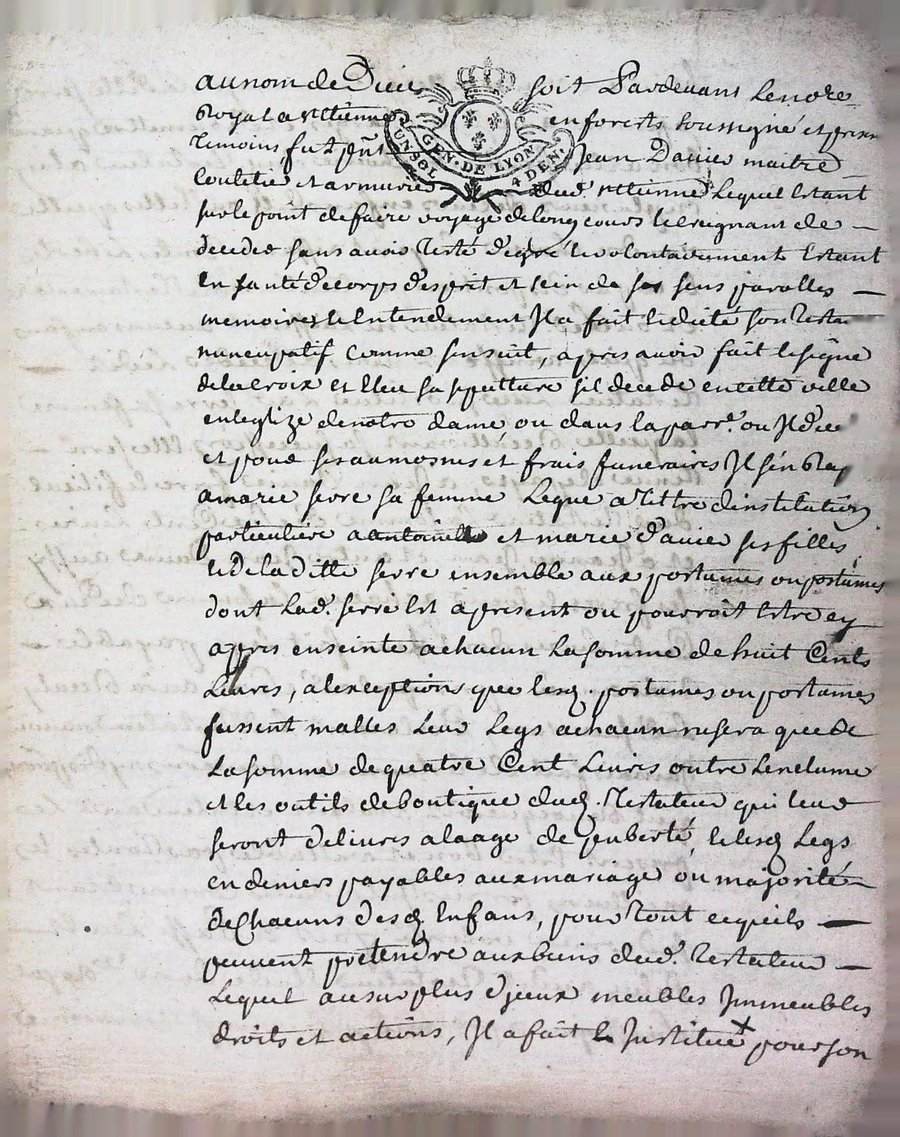 au nom de Dieu soit Pardevant Le no.re
Royal a st Etienne en forests soussigné et presen
GEN. DE LYON
UN SOL 4 DEN.
Temoins fut pnt Jean Davier maitre
Coutelie et armurie dud. st Etienne Lequel Estant
sur le point de faire voyage de long cours & Creignant de —
deceder sans avoir Testé de gré & volontairement Estant
En santé de corps d'esprit et sein de ses sens parolles —
memoires & Entendement Il a fait & dicté son Testa
nuncupatif Comme sensuit, apres avoir fait le signe
de la croix et Eleu sa sepulture sil decede en cette ville
en leglize de notre dame, ou dans la parr.e ou Il dece
et pour ses aumosnes et frais funeraires Il sen Rap
a marie serre sa femme Legue a tittre dinstitution
particuliere a antoinette et marie Davier ses filles
& de la ditte serre ensemble aux postumes ou postumes
dont Lad. serre Est a present ou pourroit Estre cy
apres enseinte a chacun La somme de huit Cents
Livres, a lexceptions que lesd. postumes ou postumes
fussent malles Leur Legs a chacun ne sera que de
La somme de quatre Cent Livres outre Lenclume
et les outils de boutique dud. Testateur qui leur
seront delivres a laage de puberté, & lesd Legs
en deniers payables aux mariage ou majorité
de Chacuns desd Enfans, pour Tout ce quils —
peuvent pretendre aux biens dud. Testateur —
Lequel au surplus d'yceux meubles Immeubles
droits et actions, Il a fait & Institué + pour son